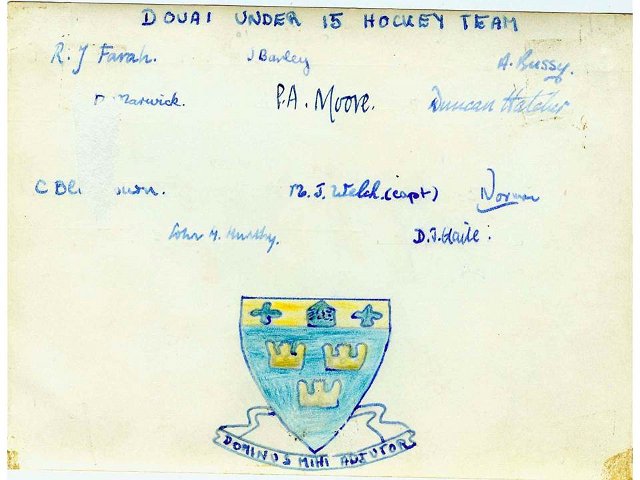 DOUAI UNDER 15 HOCKEY TEAM
R. J Farah. J Barley A. Bussy.
Marwick. P.A. Moore. Duncan Hatcher
C M. J. Welch. (capt) Norman
John M. D. J.
DOMINUS MIHI ADJUTOR